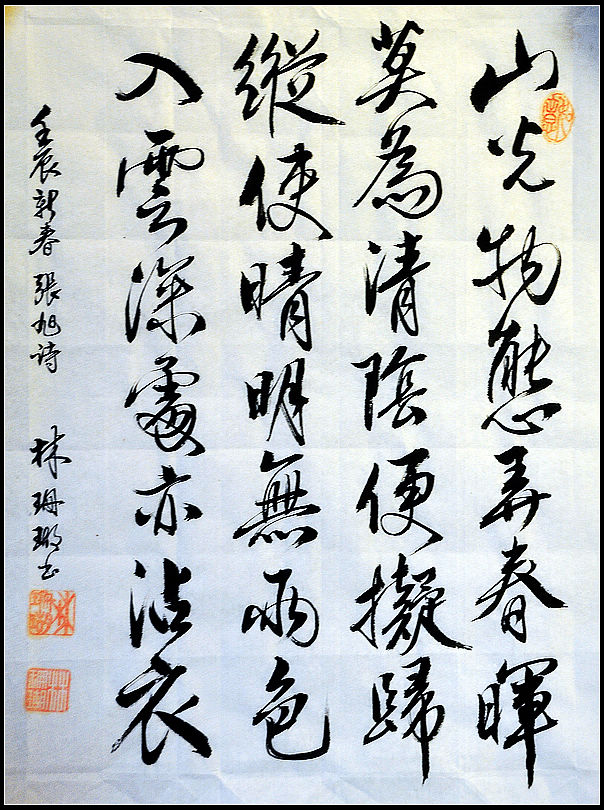 山光物態弄春暉
莫為清陰便擬歸
縱使晴明無雨色
入雲深處亦沾衣
壬辰新春 張旭诗 林珊璐书